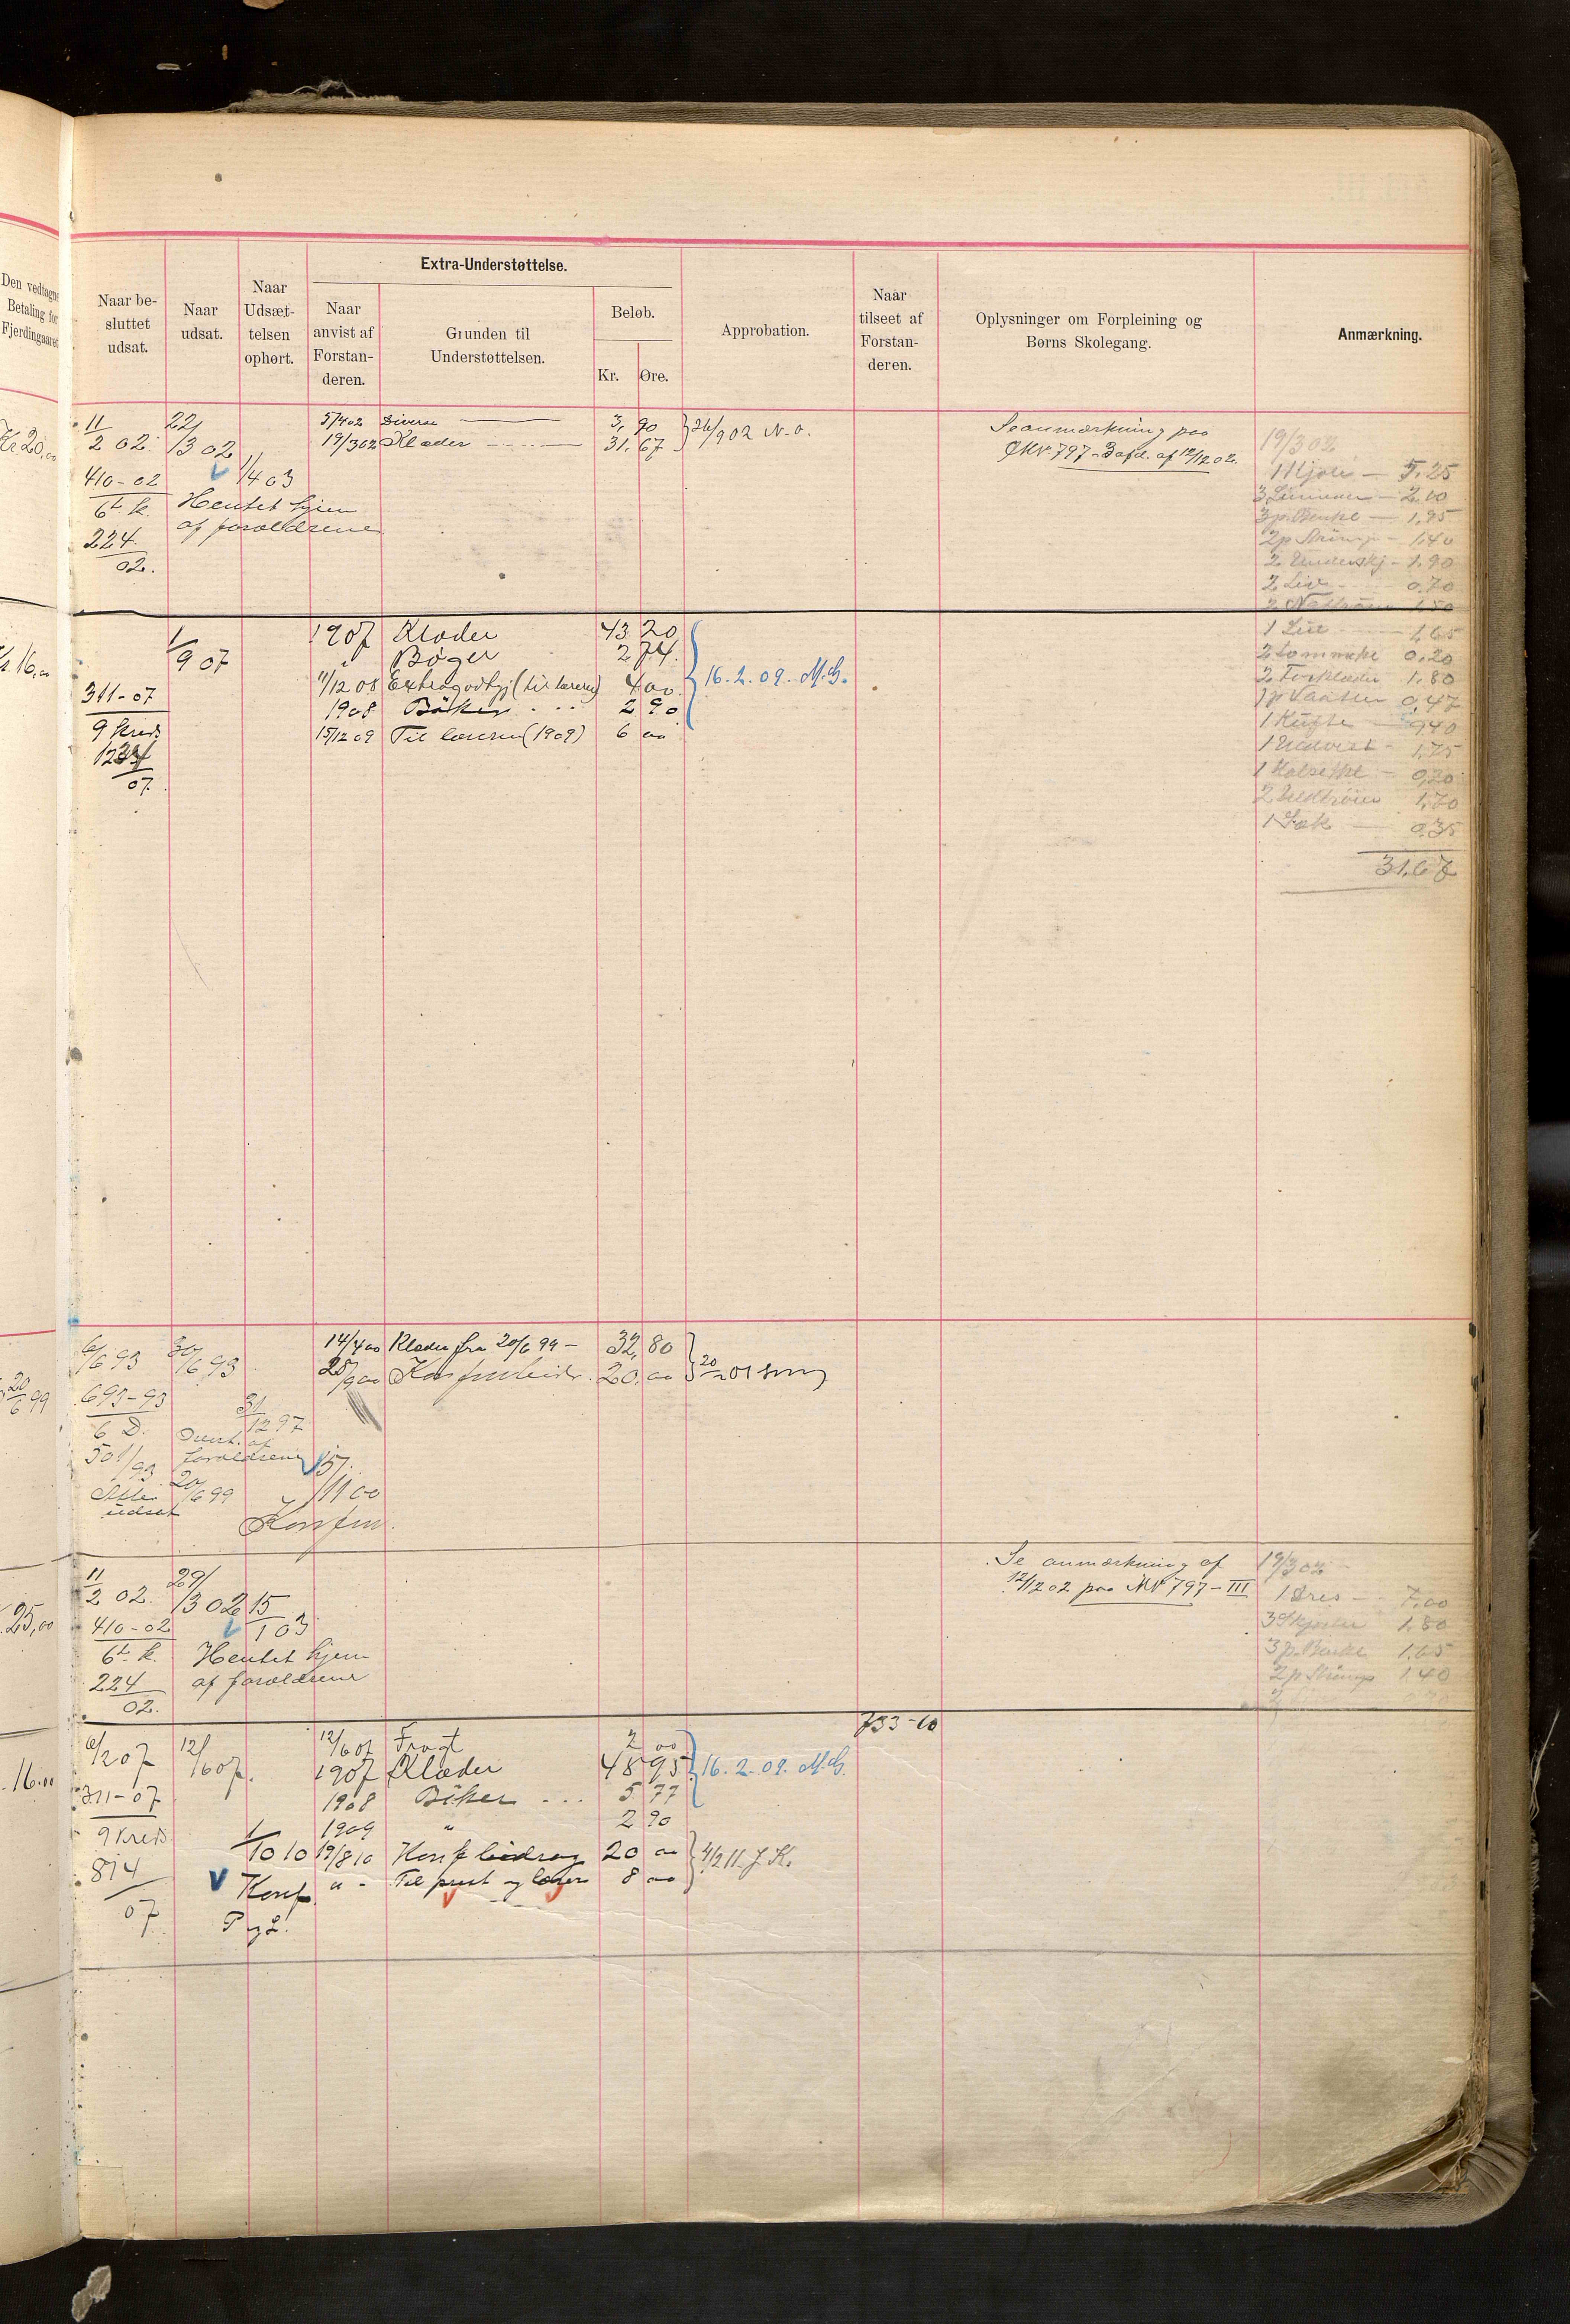 Den vedtagne
Betaling for
Fjerdingaaret
Naar be-
sluttet
udsat.
Naar
udsat.
Naar
Udsæt-
telsen
ophørt.
Extra-Understøttelse.
Naar
anvist af
Forstan-
deren.
Grunden til
Understøttelsen.
Beløb.
Kr. Øre.
Approbation.
Naar
tilseet af
Forstan-
deren.
Oplysninger om Forpleining og
Børns Skolegang.
Anmærkning.
Kr. 20,00
11/2 02. 22/3 02
410-02 1/4 03
6te k. Hentet hjem
224 af forældrene
02.
5/4 02 Diverse 3, 90
19/3 02 Klæder 31. 67
26/9 02 N.O.
Se anmærkning paa
797-3 afd. af 12/12 02.
19/302
1 Kjole — 5.25
— 2,00
— 1,95
2 p Strømp — 1,40
2 Underskj — 1.90
2 Liv — 0.70
1,50
1,65
2 Lommetkl 0,20
2 Forklæder 1.80
1 p Vanter 0,47
9,40
1,75
0,20
1,70
1 Sæk — 0.35
31,67
Kr. 16,00
1/9 07
311-07
9 Kreds
07
1907 Klæder 43 20
" Bøger 2 74
11/12 08 Extragodtgj (til læreren) 4 00
1908 Bøker 2 90
15/12 09 Til læreren (1909) 6 00
16. 2. 09. M.G.
20/6 99
6/6 93 30/6 93
693-93 31/12 97
6 D. af
501/93 forældrene 15/
20/6 99 11 00
udsat Konfirm.
14/4 00 Klæder fra 20/6 99 — 32, 80
28/9 00 20. 00
20/2 01
25,00
11/2 02. 29/3 02 15/1 03
410-02
6te k. Hentet hjem
224 af forældrene
02.
Se anmærkning af
12/12 02 paa 797-III
19/302
— 7,00
1.80
1.65
2 p Strømp 1.40
16.00
6/2 07 12/6 07.
311-07
9 Kreds
814
07
1/10 10
Konf.
P og L.
12/6 07 Fragt 2 00
1907 Klæder 48 95
1908 Bøker 5 77
1909 " 2 90
19/8 10 Konf bidrag 20 00
" - Til prest og lærer 8 00
16. 2. 09. M.G.
4/2 11. J.K.
733-10